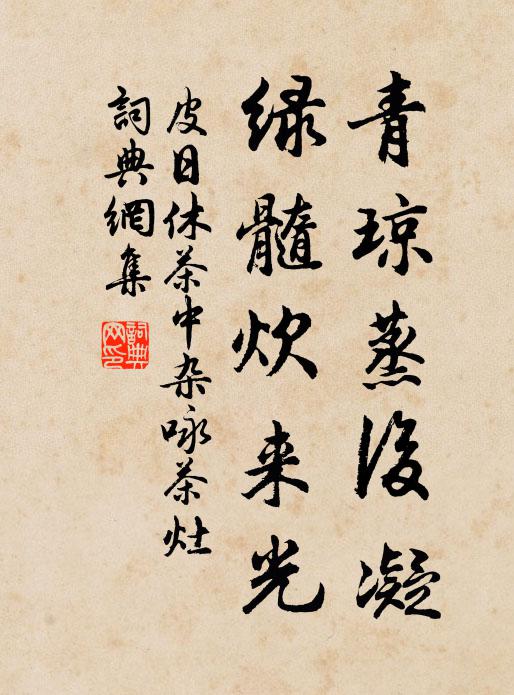 青琼蒸后凝
绿髓炊来光
皮日休茶中杂咏茶灶
詞典網集
詞典网印